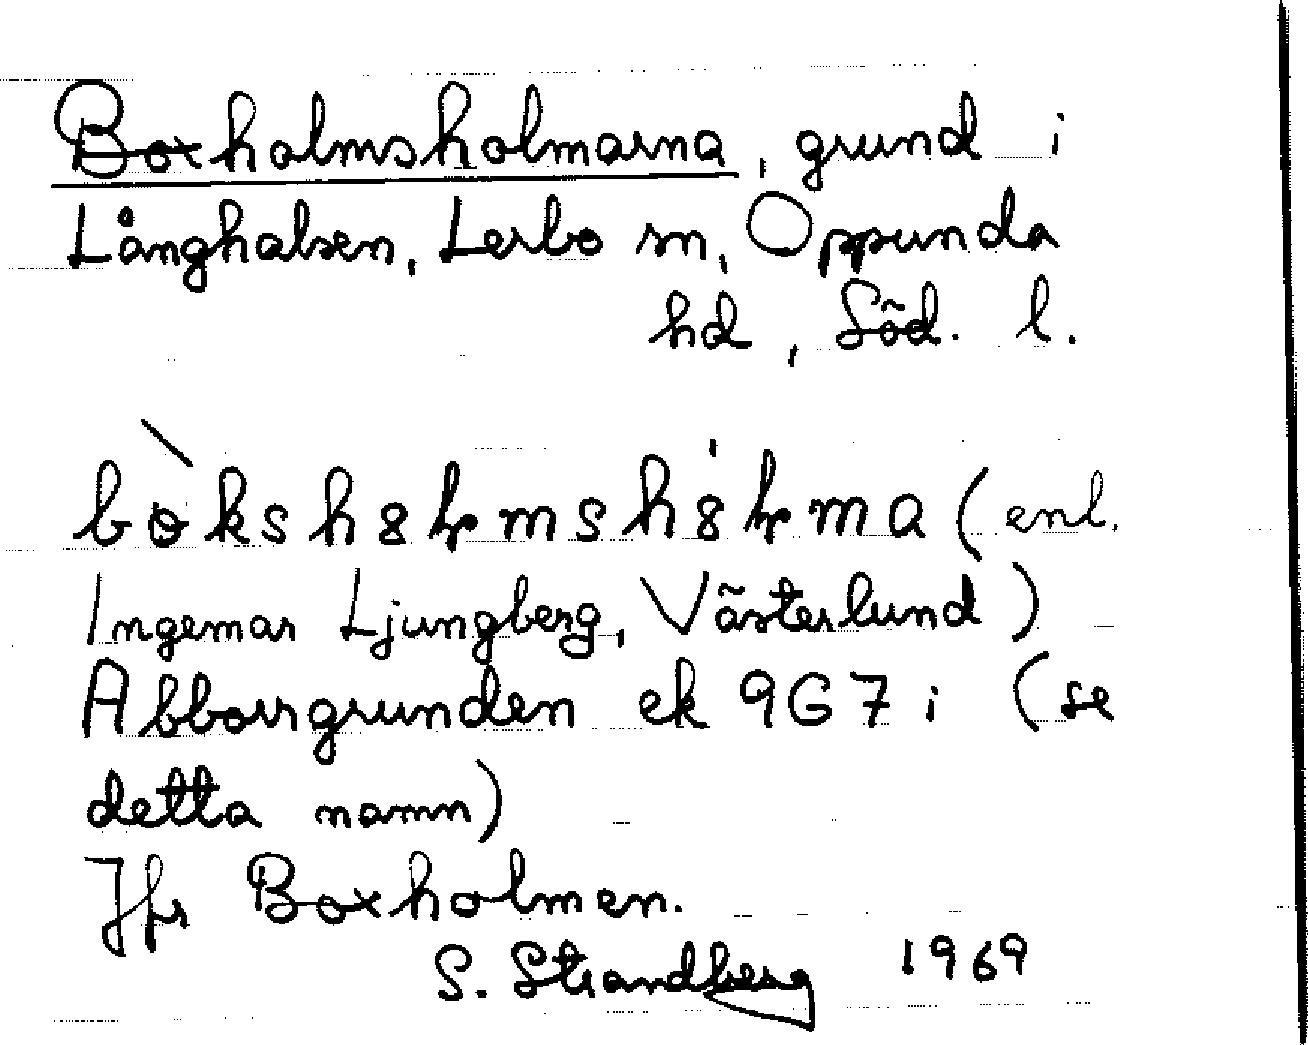 Boxholmsholmarna, grund i
Långhalsen, Lerbo sn, Oppunda
hd, Söd. l.
Ingemar Ljungberg, Västerlund)
Abborrgrunden ek 9G7i (se
detta namn)
Jfr Boxholmen.
S. Strandberg 1969